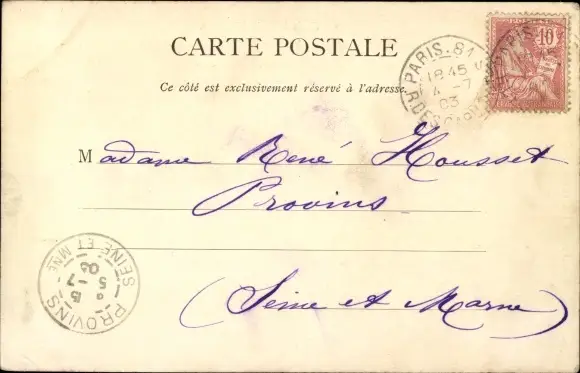 CARTE POSTALE
Ce côté est exclusivement réservé à l'adresse.
PARIS. 81
18 45
4 - 7
03
10
Madame René Housset
Provins
(Seine et Marne)
PROVINS
SEINE ET MNE
5 - 7
03